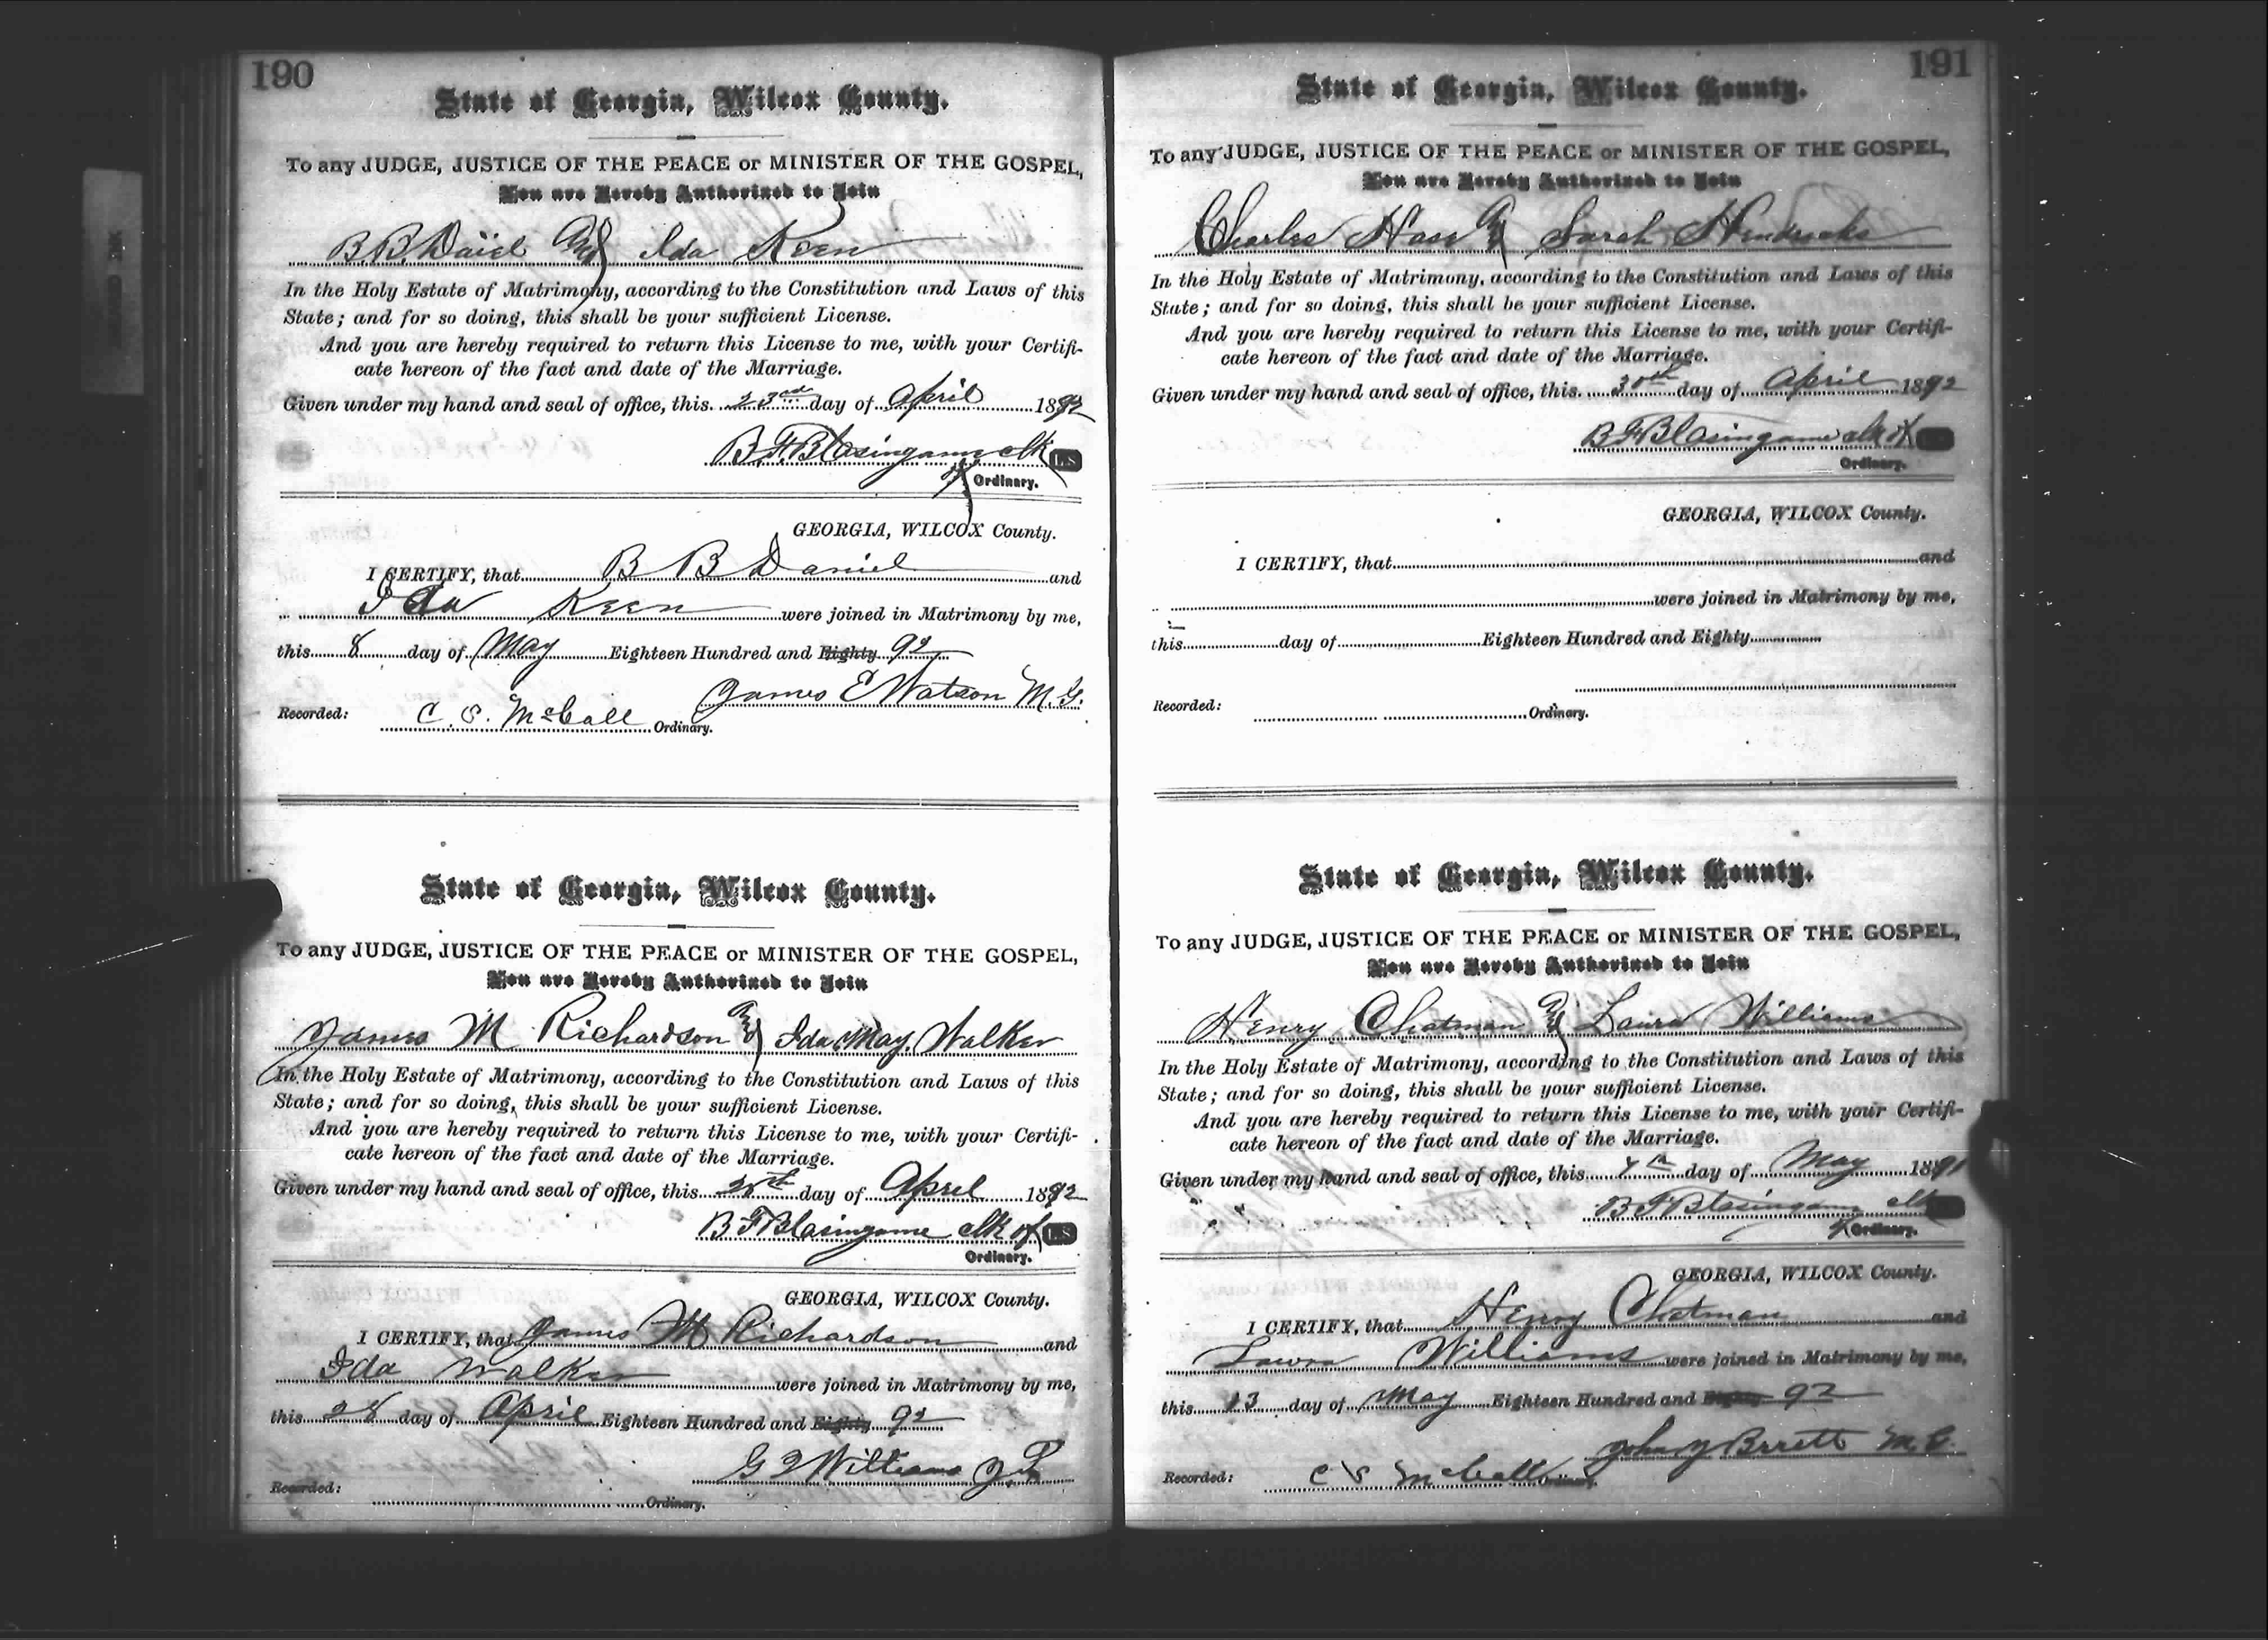 190
State of Georgia, Wilcox County.
To any JUDGE, JUSTICE OF THE PEACE or MINISTER OF THE GOSPEL,
You are Hereby Authorized to Join
B. B. Daniel And Ida Keen
In the Holy Estate of Matrimony, according to the Constitution and Laws of this
State; and for so doing, this shall be your sufficient License.
And you are hereby required to return this License to me, with your Certifi-
cate hereon of the fact and date of the Marriage.
Given under my hand and seal of office, this 23rd day of April 1892
B. F. Blasingame clk L.S
of Ordinary.
GEORGIA, WILCOX County.
I CERTIFY, that B B Daniel and
Ida Keen were joined in Matrimony by me,
this 8 day of May Eighteen Hundred and Eighty 92
James E Watson M. G.
Recorded: C. S. McCall Ordinary.
State of Georgia, Wilcox County.
To any JUDGE, JUSTICE OF THE PEACE or MINISTER OF THE GOSPEL,
You are Hereby Authorized to Join
James M Richardson And Ida May Walker
In the Holy Estate of Matrimony, according to the Constitution and Laws of this
State; and for so doing, this shall be your sufficient License.
And you are hereby required to return this License to me, with your Certifi-
cate hereon of the fact and date of the Marriage.
Given under my hand and seal of office, this day of April 1892
B F Blasingame clk of L.S
Ordinary.
GEORGIA, WILCOX County.
I CERTIFY, that James M Richardson and
Ida Walker were joined in Matrimony by me,
this 28 day of April Eighteen Hundred and Eighty 92
G Williams J.P.
Recorded: Ordinary.
191
State of Georgia, Wilcox County.
To any JUDGE, JUSTICE OF THE PEACE or MINISTER OF THE GOSPEL,
You are Hereby Authorized to Join
Charles And Sarah Hendricks
In the Holy Estate of Matrimony, according to the Constitution and Laws of this
State; and for so doing, this shall be your sufficient License.
And you are hereby required to return this License to me, with your Certifi-
cate hereon of the fact and date of the Marriage.
Given under my hand and seal of office, this 30th day of April 1892
B F Blasingame clk of
Ordinary.
GEORGIA, WILCOX County.
I CERTIFY, that and
were joined in Matrimony by me,
this day of Eighteen Hundred and Eighty
Recorded: Ordinary.
State of Georgia, Wilcox County.
To any JUDGE, JUSTICE OF THE PEACE or MINISTER OF THE GOSPEL,
You are Hereby Authorized to Join
Henry Chatman And Laura Williams
In the Holy Estate of Matrimony, according to the Constitution and Laws of this
State; and for so doing, this shall be your sufficient License.
And you are hereby required to return this License to me, with your Certifi-
cate hereon of the fact and date of the Marriage.
Given under my hand and seal of office, this day of May 1891
B F Blasingame clk
of Ordinary.
GEORGIA, WILCOX County.
I CERTIFY, that Henry Chatman and
Laura Williams were joined in Matrimony by me,
this 13 day of May Eighteen Hundred and Eighty 92
John M. G.
Recorded: C S McCall Ordinary.